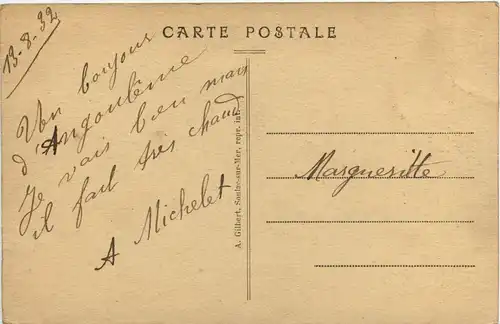 13-8-32
CARTE POSTALE
Un bonjour
d'Angoulême
Je vais bien mais
il fait très chaud
A Michelet
A. Gilbert, Soulac-sur-Mer, repr. int.
Margueritte